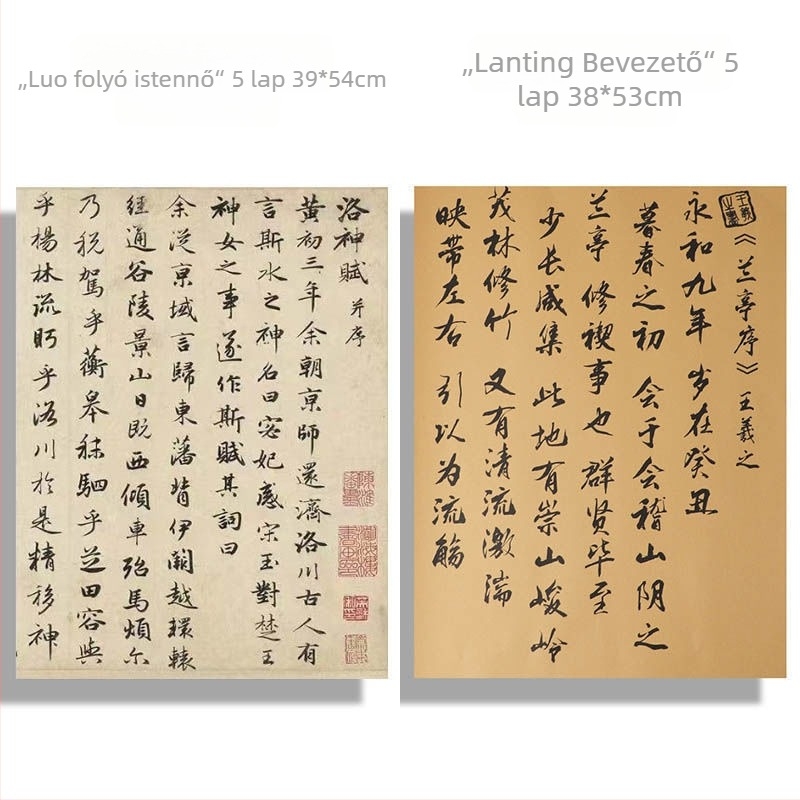 „Luo folyó istennő“ 5 lap 39*54cm
„Lanting Bevezető“ 5
lap 38*53cm
洛神賦 并序
黃初三年余朝京師還濟洛川古人有
言斯水之神名曰宓妃感宋玉對楚王
神女之事遂作斯賦其詞曰
余從京域言歸東藩背伊闕越轘轅
經通谷陵景山日既西傾車殆馬煩尔
乃税駕乎蘅皋秣駟乎芝田容與
乎楊林流眄乎洛川於是精移神
《兰亭序》王羲之
永和九年 岁在癸丑
暮春之初 会于会稽山阴之
兰亭 修禊事也 群贤毕至
少长咸集 此地有崇山峻岭
茂林修竹 又有清流激湍
映带左右 引以为流觞